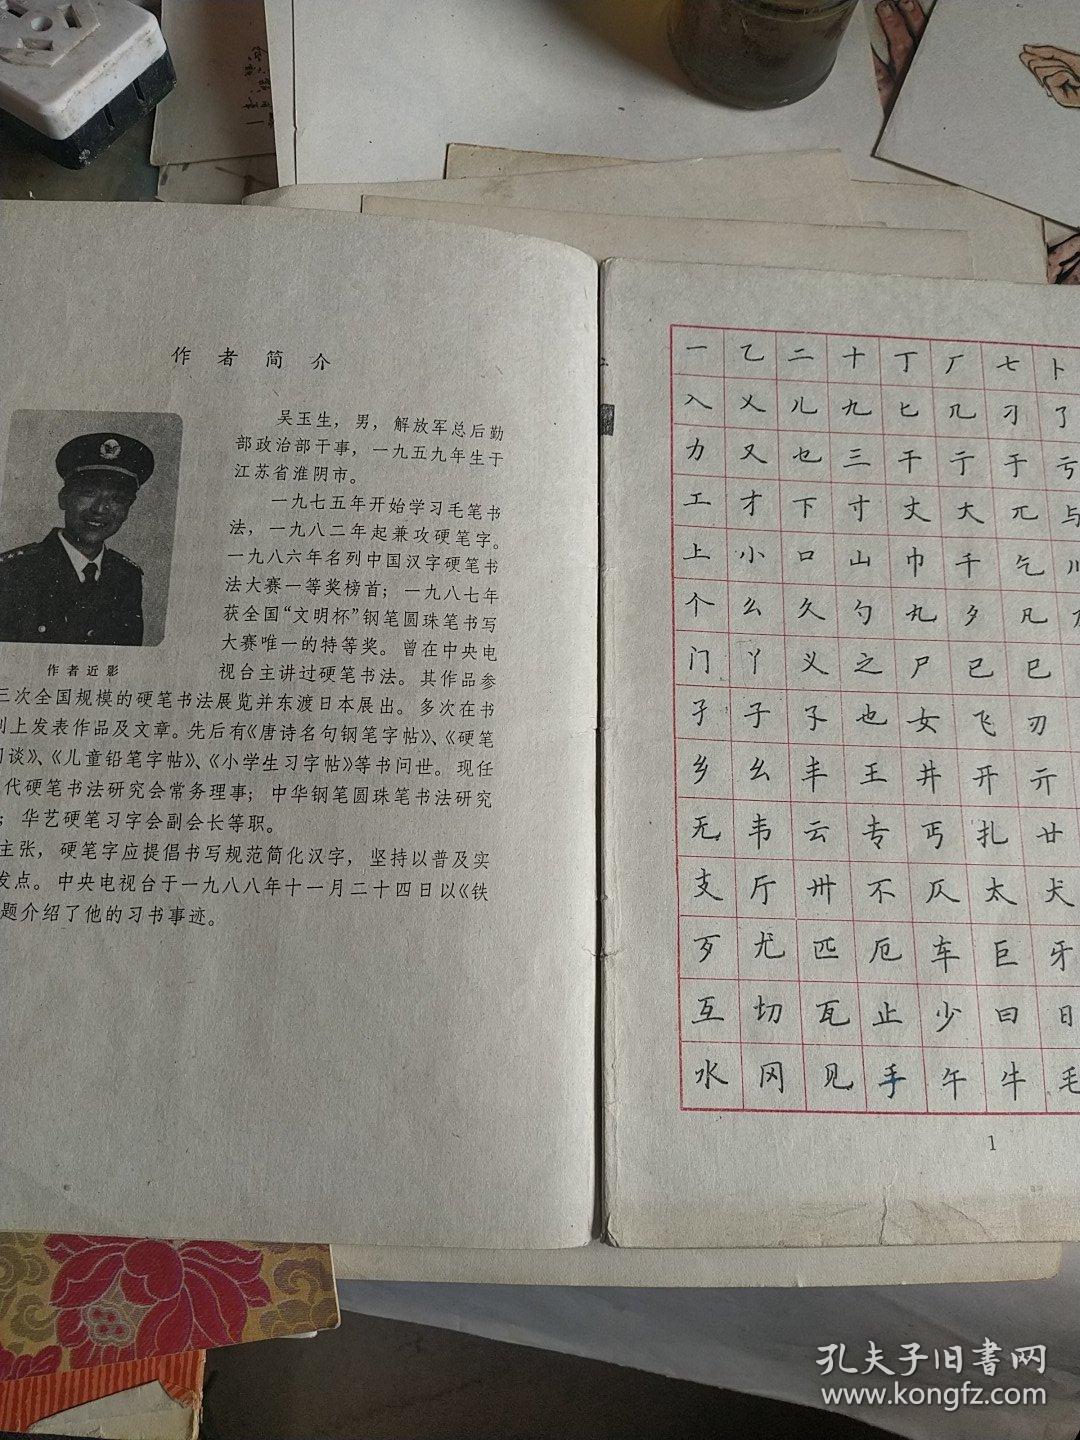 作者简介
吴玉生，男，解放军总后勤
部政治部干事，一九五九年生于
江苏省淮阴市。
一九七五年开始学习毛笔书
法，一九八二年起兼攻硬笔字。
一九八六年名列中国汉字硬笔书
法大赛一等奖榜首；一九八七年
获全国“文明杯”钢笔圆珠笔书写
大赛唯一的特等奖。曾在中央电
视台主讲过硬笔书法。其作品参
作者近影
三次全国规模的硬笔书法展览并东渡日本展出。多次在书
刊上发表作品及文章。先后有《唐诗名句钢笔字帖》、《硬笔
谈》、《儿童铅笔字帖》、《小学生习字帖》等书问世。现任
代硬笔书法研究会常务理事；中华钢笔圆珠笔书法研究
；华艺硬笔习字会副会长等职。
主张，硬笔字应提倡书写规范简化汉字，坚持以普及实
发点。中央电视台于一九八八年十一月二十四日以《铁
题介绍了他的习书事迹。
一乙二十丁厂七卜
入乂儿九匕几刁了
力又乜三干亍于亏
工才下寸丈大兀与
上小口山巾千乞川
个么久勺丸夕凡
门丫义之尸已巳
孑子孓也女飞刃
乡幺丰王井开亓
无韦云专丐扎廿
支厅卅不仄太犬
歹尤匹厄车巨牙
互切瓦止少曰日
水冈见手午牛毛
1
孔夫子旧書网
www.kongfz.com